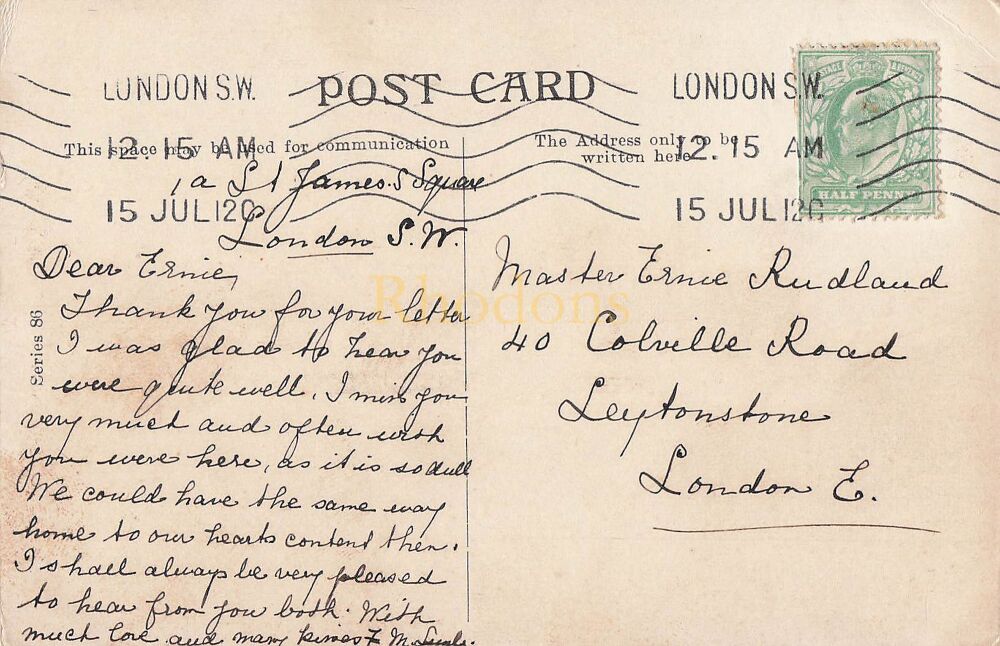 LONDON S.W.
12. 15 AM
15 JUL 12
POST CARD
LONDON S.W.
12. 15 AM
15 JUL 12
HALF PENNY
This space may be used for communication
The Address only to be
written here
1a St James.s Square
London S.W.
Dear Ernie,
Thank you for your letter
I was glad to hear you
were quite well. I miss you
very much and often wish
you were here, as it is so dull
We could have the same way
home to our hearts content then.
I shall always be very pleased
to hear from you both. With
much love and many kisses F. M.
Series 86
Master Ernie Rudland
40 Colville Road
Leytonstone
London E.
Rhodons